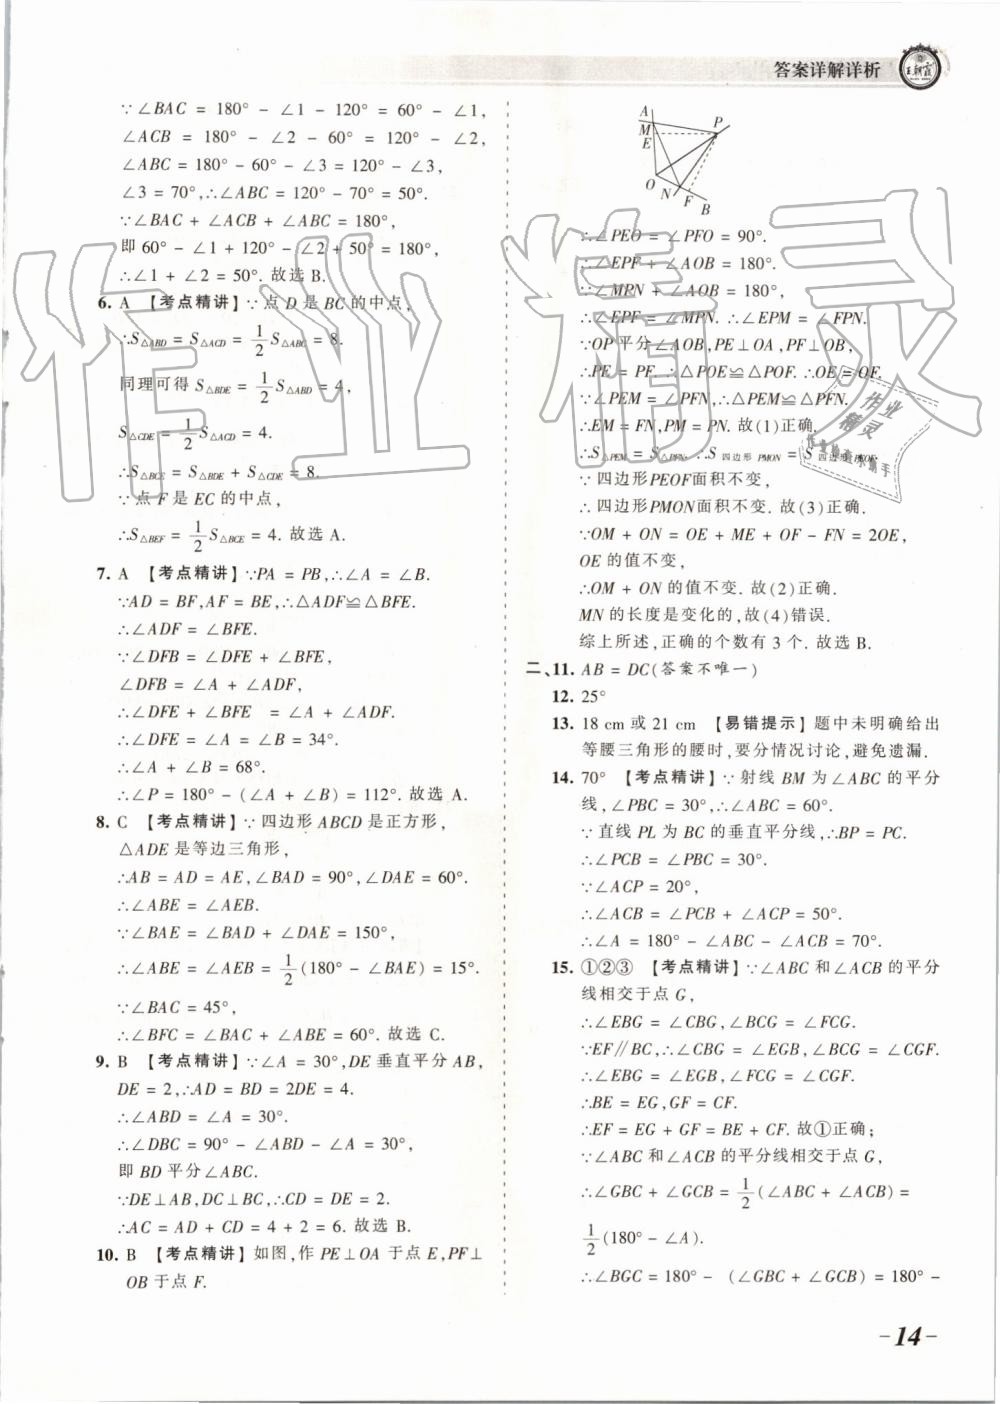 答案详解详析
王朝霞
∵∠BAC = 180° - ∠1 - 120° = 60° - ∠1,
∠ACB = 180° - ∠2 - 60° = 120° - ∠2,
∠ABC = 180° - 60° - ∠3 = 120° - ∠3,
∠3 = 70°,∴∠ABC = 120° - 70° = 50°.
∵∠BAC + ∠ACB + ∠ABC = 180°,
即 60° - ∠1 + 120° - ∠2 + 50° = 180°,
∴∠1 + ∠2 = 50°. 故选 B.
6. A 【考点精讲】∵点 D 是 BC 的中点,
∴S△ABD = S△ACD = 1/2 S△ABC = 8.
同理可得 S△BDE = 1/2 S△ABD = 4,
S△CDE = 1/2 S△ACD = 4.
∴S△BCE = S△BDE + S△CDE = 8.
∵点 F 是 EC 的中点,
∴S△BEF = 1/2 S△BCE = 4. 故选 A.
7. A 【考点精讲】∵PA = PB,∴∠A = ∠B.
∵AD = BF,AF = BE,∴△ADF≌△BFE.
∴∠ADF = ∠BFE.
∵∠DFB = ∠DFE + ∠BFE,
∠DFB = ∠A + ∠ADF,
∴∠DFE + ∠BFE = ∠A + ∠ADF.
∴∠DFE = ∠A = ∠B = 34°.
∴∠A + ∠B = 68°.
∴∠P = 180° - (∠A + ∠B) = 112°. 故选 A.
8. C 【考点精讲】∵四边形 ABCD 是正方形,
△ADE 是等边三角形,
∴AB = AD = AE,∠BAD = 90°,∠DAE = 60°.
∴∠ABE = ∠AEB.
∵∠BAE = ∠BAD + ∠DAE = 150°,
∴∠ABE = ∠AEB = 1/2 (180° - ∠BAE) = 15°.
∵∠BAC = 45°,
∴∠BFC = ∠BAC + ∠ABE = 60°. 故选 C.
9. B 【考点精讲】∵∠A = 30°,DE 垂直平分 AB,
DE = 2,∴AD = BD = 2DE = 4.
∴∠ABD = ∠A = 30°.
∴∠DBC = 90° - ∠ABD - ∠A = 30°,
即 BD 平分∠ABC.
∵DE⊥AB,DC⊥BC,∴CD = DE = 2.
∴AC = AD + CD = 4 + 2 = 6. 故选 B.
10. B 【考点精讲】如图,作 PE⊥OA 于点 E,PF⊥
OB 于点 F.
A
M
E
P
O
N
F
B
∴∠PEO = ∠PFO = 90°.
∴∠EPF + ∠AOB = 180°.
∵∠MPN + ∠AOB = 180°,
∴∠EPF = ∠MPN. ∴∠EPM = ∠FPN.
∵OP 平分∠AOB,PE⊥OA,PF⊥OB,
∴PE = PF. ∴△POE≌△POF. ∴OE = OF.
∵∠PEM = ∠PFN,∴△PEM≌△PFN.
∴EM = FN,PM = PN. 故(1)正确.
∴S△PEM = S△PFN. ∴S四边形PMON = S四边形PEOF.
∵四边形 PEOF 面积不变,
∴四边形 PMON 面积不变. 故(3)正确.
∵OM + ON = OE + ME + OF - FN = 2OE,
OE 的值不变,
∴OM + ON 的值不变. 故(2)正确.
MN 的长度是变化的,故(4)错误.
综上所述,正确的个数有 3 个. 故选 B.
二、11. AB = DC(答案不唯一)
12. 25°
13. 18 cm 或 21 cm 【易错提示】题中未明确给出
等腰三角形的腰时,要分情况讨论,避免遗漏.
14. 70° 【考点精讲】∵射线 BM 为∠ABC 的平分
线,∠PBC = 30°,∴∠ABC = 60°.
∵直线 PL 为 BC 的垂直平分线,∴BP = PC.
∴∠PCB = ∠PBC = 30°.
∵∠ACP = 20°,
∴∠ACB = ∠PCB + ∠ACP = 50°.
∴∠A = 180° - ∠ABC - ∠ACB = 70°.
15. ①②③ 【考点精讲】∵∠ABC 和∠ACB 的平分
线相交于点 G,
∴∠EBG = ∠CBG,∠BCG = ∠FCG.
∵EF∥BC,∴∠CBG = ∠EGB,∠BCG = ∠CGF.
∴∠EBG = ∠EGB,∠FCG = ∠CGF.
∴BE = EG,GF = CF.
∴EF = EG + GF = BE + CF. 故①正确;
∵∠ABC 和∠ACB 的平分线相交于点 G,
∴∠GBC + ∠GCB = 1/2 (∠ABC + ∠ACB) =
1/2 (180° - ∠A).
∴∠BGC = 180° - (∠GBC + ∠GCB) = 180° -
- 14 -
作业精灵
作业
精灵